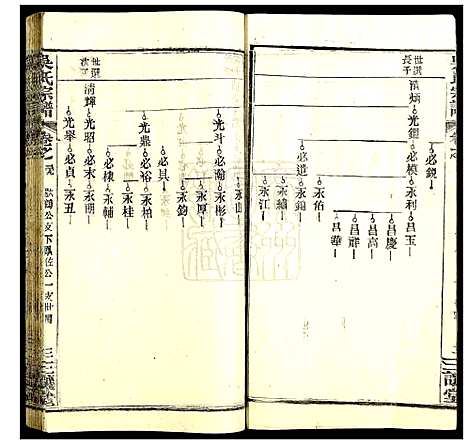 世選
長子
清炳
光鉬
必模
永利
昌玉
必銳
昌慶
昌高
昌祥
昌華
永佑
必道
永錦
永繡
永江
永山
光斗
必瀚
永彬
永厚
永鈞
必具
光鼎
必裕
永柏
永桂
必棣
永輔
世選
次子
清輝
光昭
必末
永朝
光譽
必貞
永丑
吳氏宗譜
卷之
公支下鳳佐公一支世圖
三讓堂